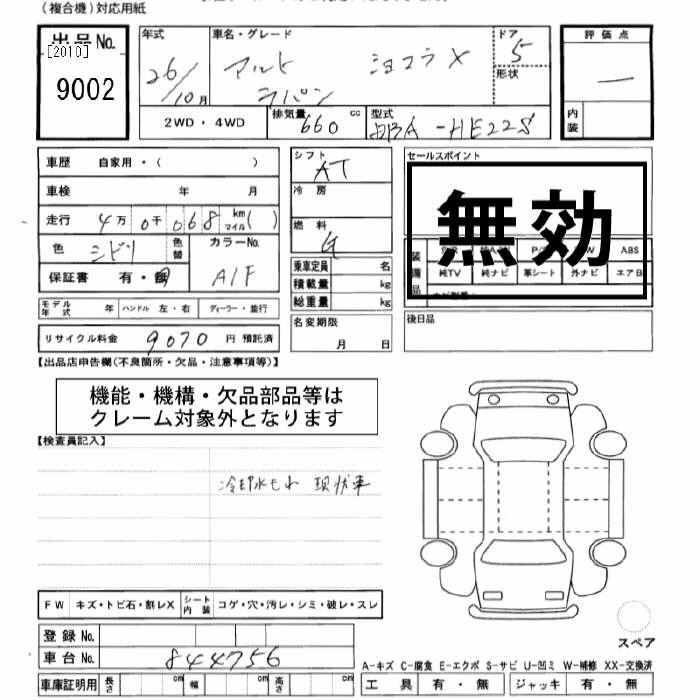 (複合機)対応用紙
出品No.
[2010]
9002
年式 26/10月
車名・グレード アルト ラパン ショコラX
ドア 5
形状
評価点 一
内装
2WD・4WD
排気量 660 cc
型式 DBA-HE22S
車歴 自家用・( )
車検 年 月
走行 4万0千068 km マイル( )
色 ミドリ 色替 カラーNo. A1F
保証書 有・無
モデル年式 年 ハンドル 左・右 ディーラー・並行
リサイクル料金 9070 円 預託済
シフト AT
冷房
燃料 ガ
乗車定員 名
積載量 kg
総重量 kg
名変期限
月 日
セールスポイント
無効
装備品
ABS
純TV 純ナビ 革シート 外ナビ エアB
後日品
【出品店申告欄(不良箇所・欠品・注意事項等)】
機能・機構・欠品部品等は
クレーム対象外となります
【検査員記入】
冷却水もれ 現状車
FW キズ・トビ石・割レX シート内装 コゲ・穴・汚レ・シミ・破レ・スレ
登録No.
車台No. 844756
車庫証明用 長さ cm 幅 cm 高さ cm
スペア
A-キズ C-腐食 E-エクボ S-サビ U-凹ミ W-補修 XX-交換済
工具 有・無 ジャッキ 有・無